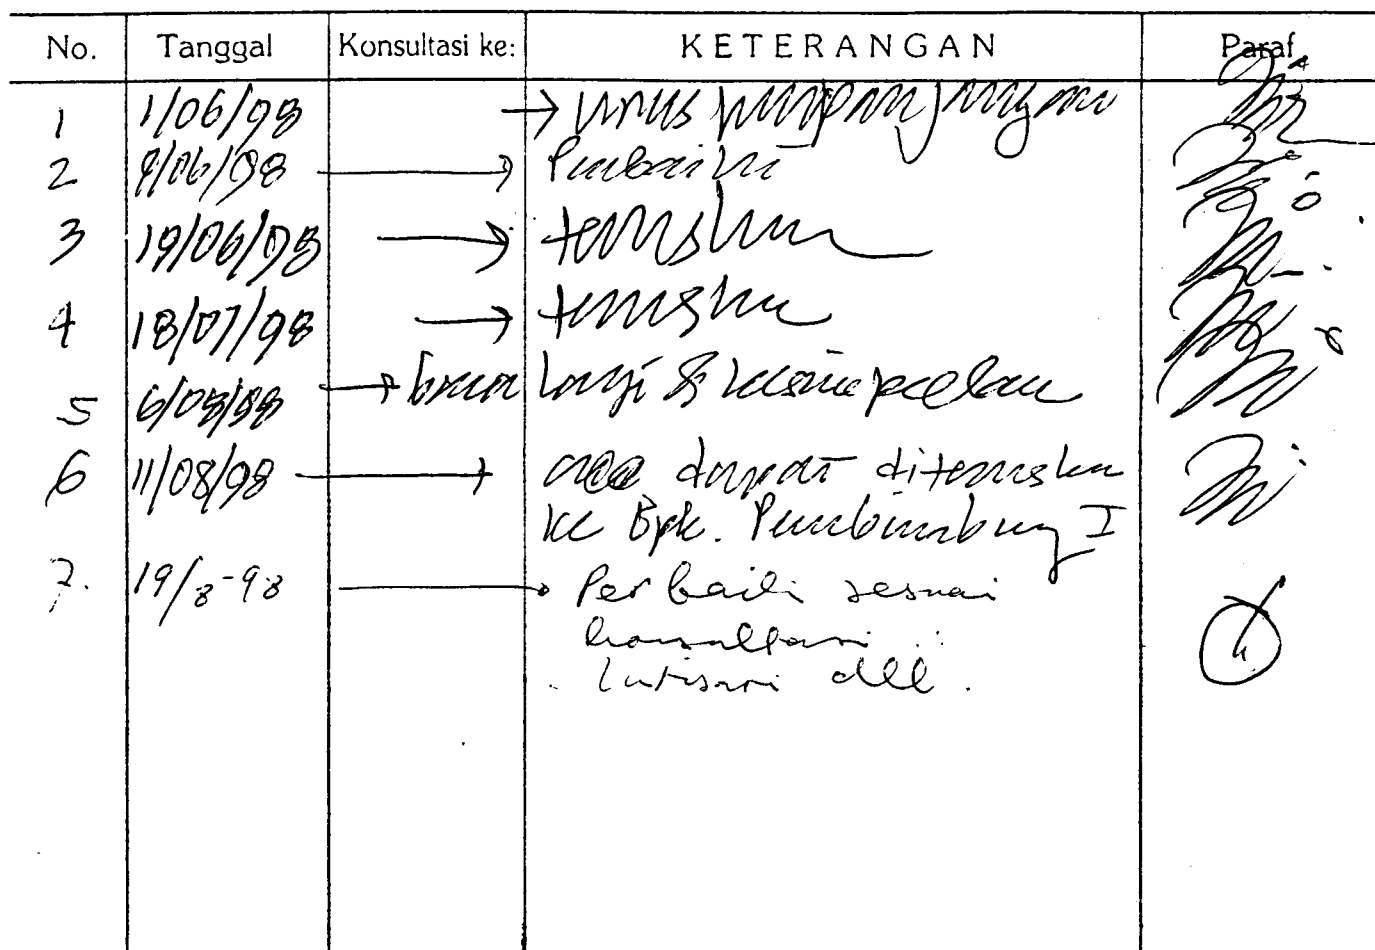 No. Tanggal Konsultasi ke: KETERANGAN Paraf
1 1/06/98 → urus perpanjangan
2 9/06/98 → Perbaiki
3 19/06/98 → teruskan
4 18/07/98 → teruskan
5 6/08/98 → lagi &
6 11/08/98 → acc dapat diteruskan
ke Bpk. Pembimbing I
7. 19/8-98 → Perbaiki sesuai
konsultasi
Intisari dll.